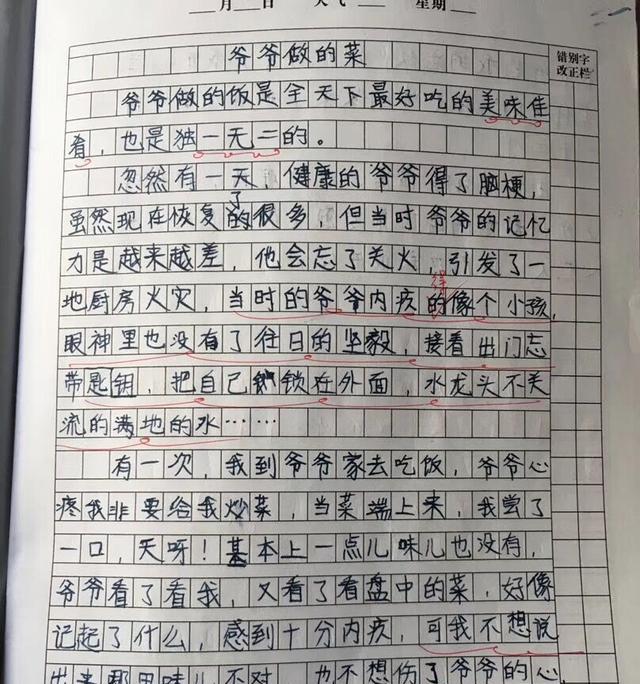 月 日 天气 星期
错别字
改正栏
爷爷做的菜
爷爷做的饭是全天下最好吃的美味佳
肴，也是独一无二的。
忽然有一天，健康的爷爷得了脑梗，
虽然现在恢复了的很多，但当时爷爷的记忆
力是越来越差，他会忘了关火，引发了一
得
地厨房火灾，当时的爷爷内疚的像个小孩，
眼神里也没有了往日的坚毅，接着出门忘
带匙钥，把自己锁在外面，水龙头不关
流的满地的水……
有一次，我到爷爷家去吃饭，爷爷心
疼我非要给我炒菜，当菜端上来，我尝了
一口，天呀！基本上一点儿味儿也没有，
爷爷看了看我，又看了看盘中的菜，好像
记起了什么，感到十分内疚，可我不想说
出来那里味儿不对，也不想伤了爷爷的心，